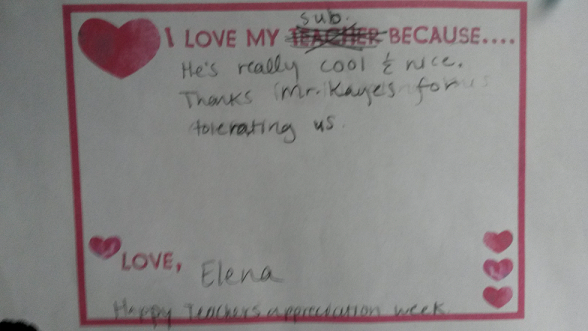 sub.
I LOVE MY TEACHER BECAUSE....
He's really cool & nice.
Thanks Mr. Kaye's for
tolerating us.
LOVE, Elena
Happy Teachers appreciation week.